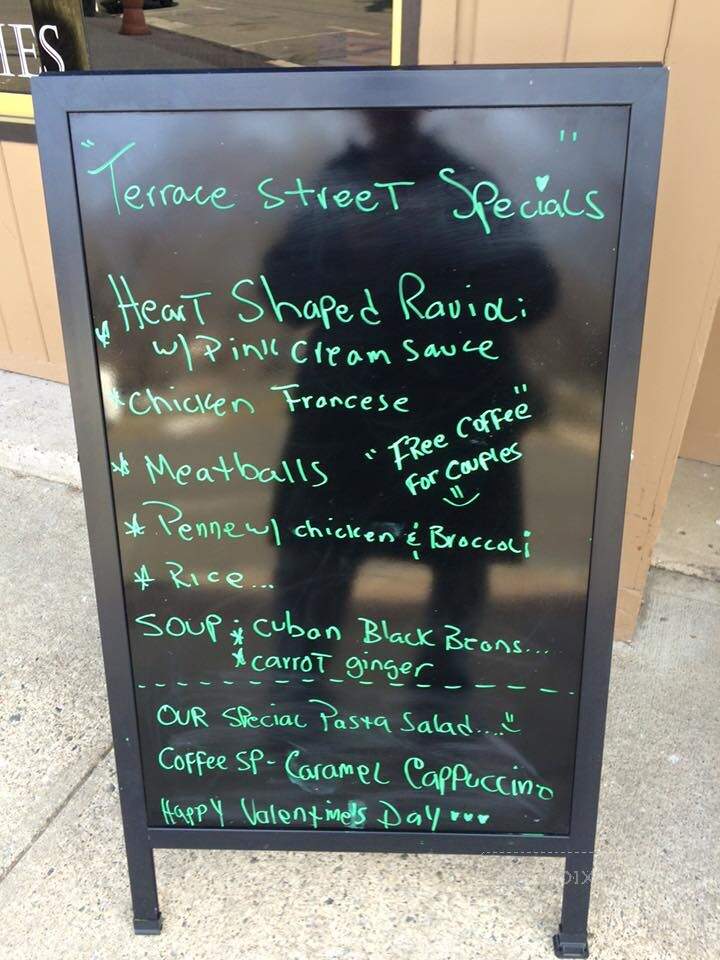 IES
"Terrace Street Specials"
* Heart Shaped Ravioli
w/ Pink Cream Sauce
* Chicken Francese
"Free Coffee"
For Couples
* Meatballs
* Penne w/ chicken & Broccoli
* Rice...
Soup: * Cuban Black Beans...
* carrot ginger
Our Special Pasta Salad....
Coffee SP - Caramel Cappuccino
Happy Valentine's Day ♥♥♥